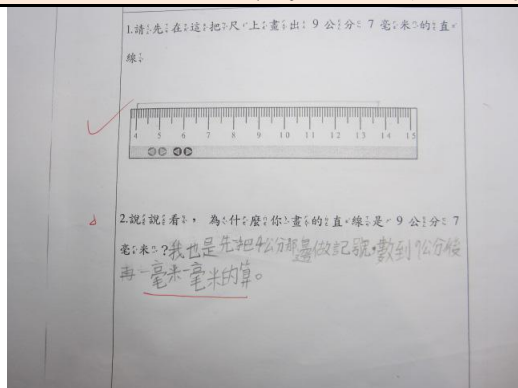 1.請先在這把尺上畫出 9 公分 7 毫米的直
線
4 5 6 7 8 9 10 11 12 13 14 15
2.說說看，為什麼你畫的直線是 9 公分 7
毫米?我也是先把4公分那邊做記號,數到9公分後
再一毫米一毫米的算。